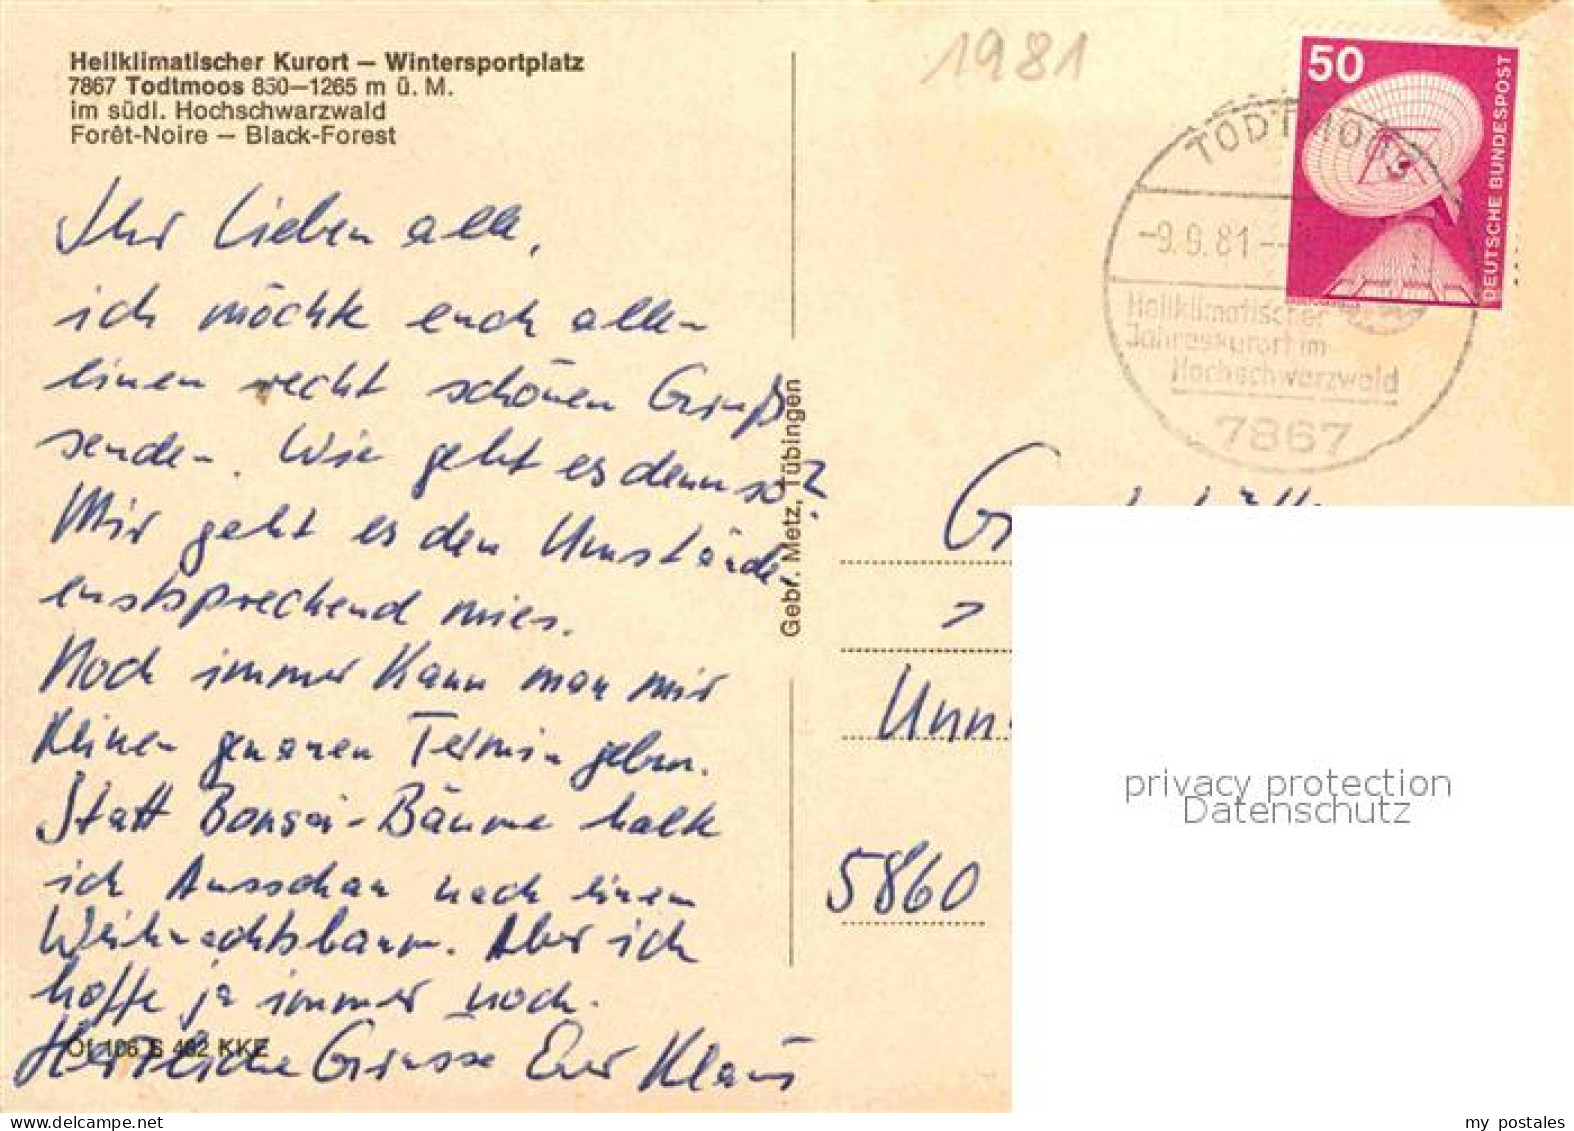 Heilklimatischer Kurort — Wintersportplatz
7867 Todtmoos 850—1265 m ü. M.
im südl. Hochschwarzwald
Forêt-Noire — Black-Forest
Ihr Lieben alle,
ich möchte euch allen
einen recht schönen Gruß
senden. Wie geht es denn so?
Mir geht es den Umständen
enstsprechend mies.
Noch immer kann man mir
keinen genauen Termin geben.
Statt Bonsai-Bäume halte
ich Ausschau nach einem
Weihnachtsbaum. Aber ich
hoffe ja immer noch.
Herzliche Grüsse Euer Klaus
Of 106 S 402 KKE
Gebr. Metz, Tübingen
1981
50
DEUTSCHE BUNDESPOST
TODTMOOS
-9.9.81--
Heilklimatischer
Jahreskurort im
Hochschwarzwald
7867
5860
privacy protection
Datenschutz
my postales